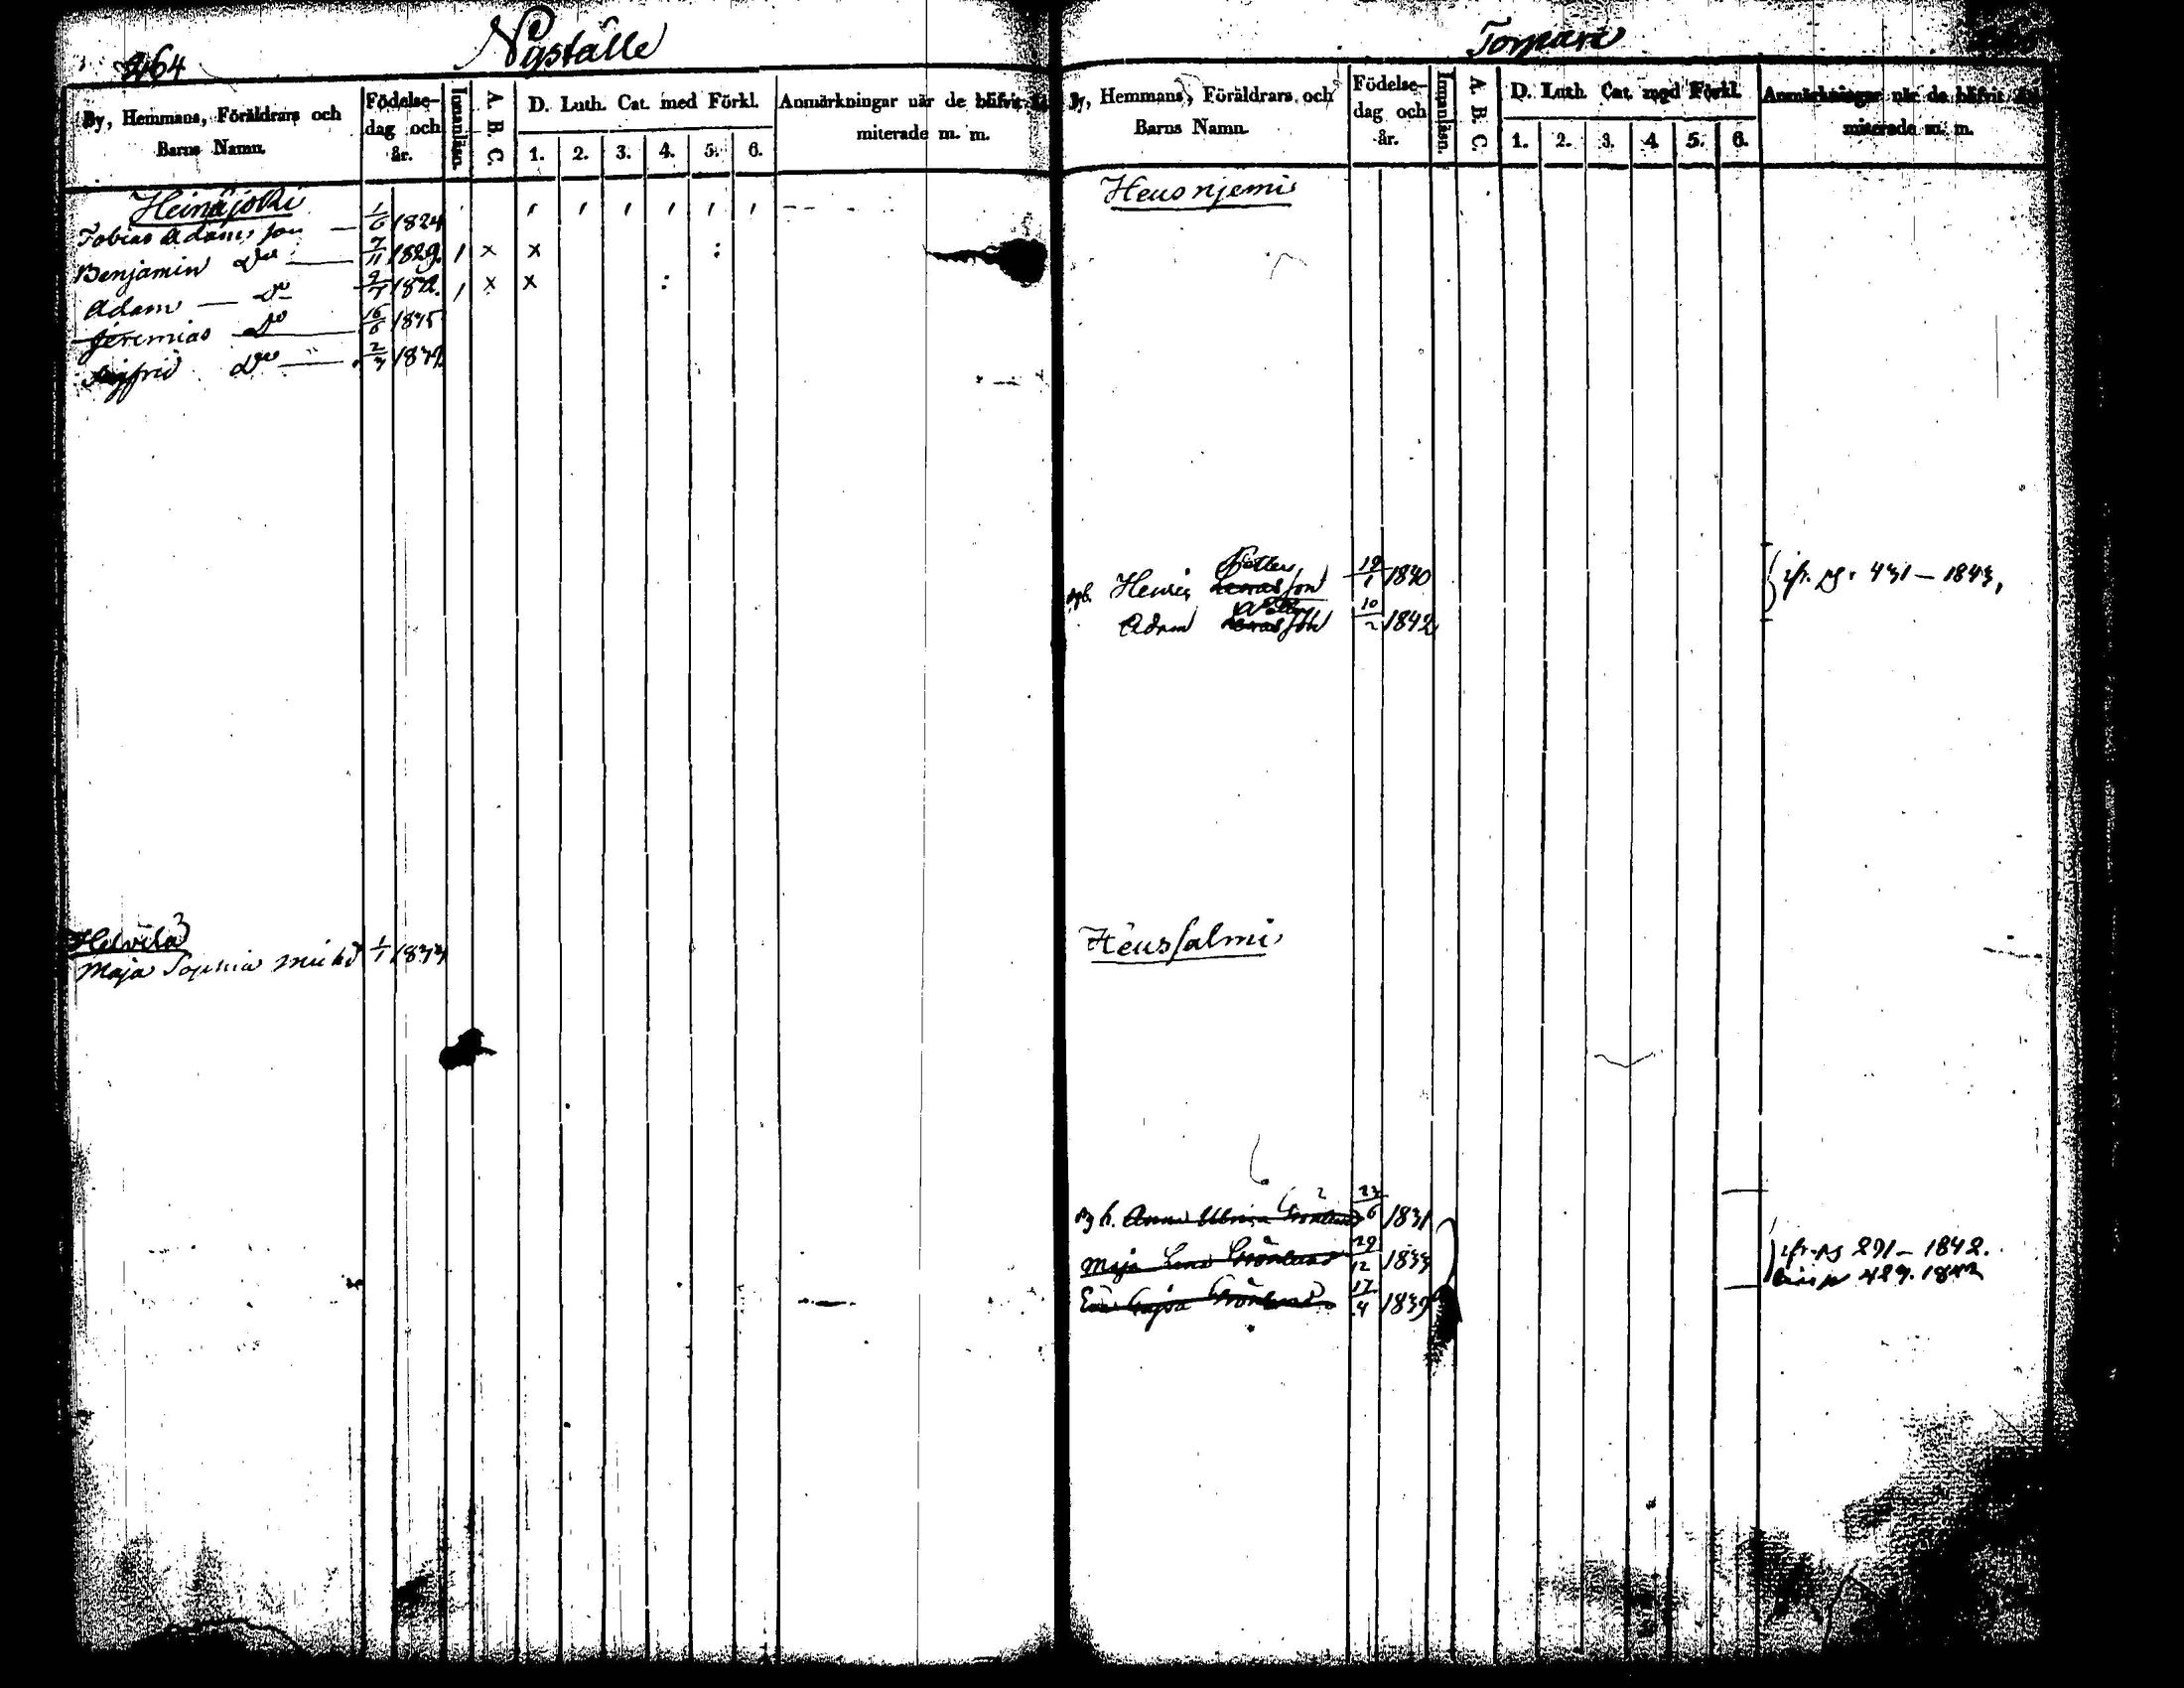 464
Nyställe
By, Hemmans, Föräldrars och
Barns Namn.
Födelse-
dag och
år.
Innanläsn.
A. B. C.
D. Luth. Cat. med Förkl.
1. 2. 3. 4. 5. 6.
Anmärkningar när de blifvit
miterade m. m.
Heinäjoki
Tobias Adams son — 1/6 1824
Benjamin Do — 7/11 1829. / x x :
Adam — Do 9/7 / x x :
Jeremias Do — 16/6 1835
Sigfrid Do — 2/3
Helvilä
Maja 1/1
Torpare
By, Hemmans, Föräldrars och
Barns Namn.
Födelse-
dag och
år.
Innanläsn.
A. B. C.
D. Luth. Cat. med Förkl.
1. 2. 3. 4. 5. 6.
Anmärkningar när de blifvit
miterade m. m.
Heusnjemi
Henric son 19/1 1840
Adam son 10/2 1842
431 — 1843,
Heussalmi
Anna Ulrica Grönlund 23/6 1831
Maja Lena Grönlund 29/12 1833
Eva Cajsa Grönlund 17/4 1839
271 — 1842.